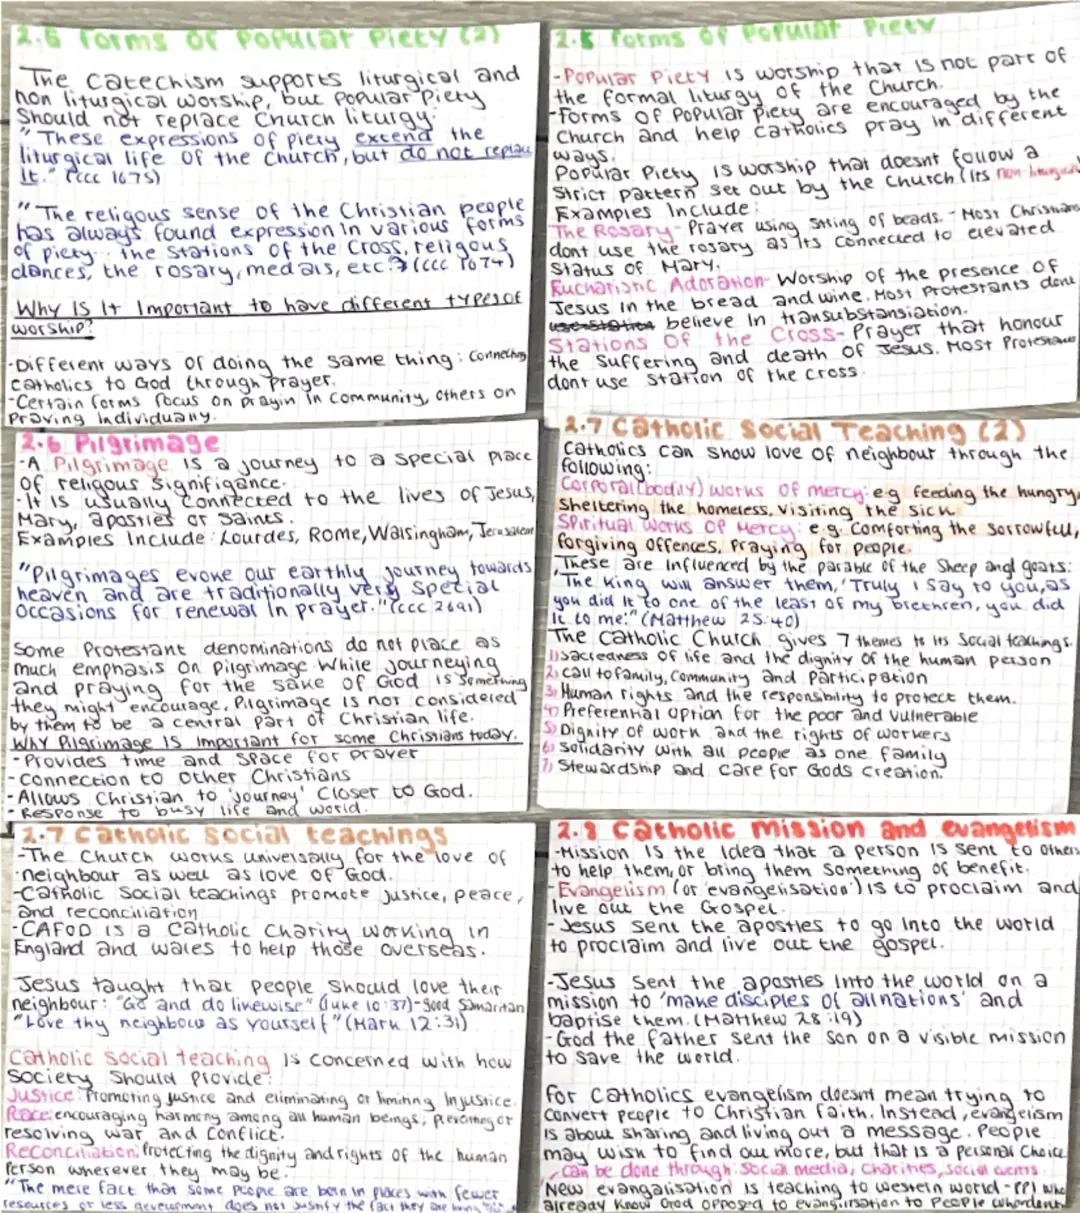 2.5 Forms Of Popular Piety (2)
The Catechism supports liturgical and
non liturgical worship, but popular piety
Should not replace Church liturgy.
"These expressions of piety extend the
liturgical life of the Church, but do not replace
it." (CCC 1675)
"The religous sense of the Christian people
has always found expression in various forms
of piety... the Stations of the Cross, religous
dances, the rosary, medals, etc." (CCC 1674)
Why Is It Important to have different types of
worship?
-Different ways of doing the same thing: Connecting
Catholics to God through prayer.
-Certain forms focus on prayin in community, others on
Praying individually.
2.5 Forms Of Popular Piety
-Popular Piety is worship that is not part of
the formal liturgy of the Church.
-Forms Of Popular Piety are encouraged by the
Church and help Catholics pray in different
ways.
Popular Piety is worship that doesnt follow a
Strict pattern set out by the Church (its non-liturgical
Examples Include:
The Rosary- Prayer using String of beads. - Most Christians
dont use the rosary as its connected to elevated
Status of Mary.
Eucharistic Adoration- Worship of the presence of
Jesus in the bread and wine. Most Protestants dont
believe in transubstansiation.
Stations Of the Cross- Prayer that honour
the Suffering and death of Jesus. Most Protestants
dont use Station of the cross.
2.6 Pilgrimage
-A Pilgrimage is a journey to a special place
of religous signifigance.
-It is usually connected to the lives of Jesus,
Mary, apostles or saints.
Examples Include: Lourdes, Rome, Walsingham, Jerusalem
"Pilgrimages evoke our earthly journey towards
heaven and are traditionally very special
Occasions for renewal in prayer." (CCC 2691)
Some Protestant denominations do not place as
much emphasis on Pilgrimage. While journeying
and praying for the sake of God is something
they might encourage, Pilgrimage is not considered
by them to be a central part of Christian life.
Why Pilgrimage Is Important for some Christians today.
-Provides time and space for prayer
-Connection to other Christians
-Allows Christian to 'journey' closer to God.
-Response to busy life and world.
2.7 Catholic Social Teaching (2)
Catholics can show love of neighbour through the
following:
Corporal (bodily) works Of mercy: e.g feeding the hungry,
Sheltering the homeless, visiting the sick
Spiritual Works Of Mercy: e.g. Comforting the sorrowful,
forgiving offences, Praying for people.
These are influenced by the parable of the Sheep and goats:
"The King will answer them, 'Truly I say to you, as
you did it to one of the least of my brethren, you did
it to me.'" (Matthew 25:40)
The Catholic Church gives 7 themes to its Social teachings.
1) Sacredness of life and the dignity of the human person
2) Call to family, Community and participation
3) Human rights and the responsibility to protect them.
4) Preferential option for the poor and vulnerable
5) Dignity of work and the rights of workers
6) Solidarity with all people as one family
7) Stewardship and care for Gods creation.
2.7 Catholic Social teachings
-The Church works universally for the love of
neighbour as well as love of God.
-Catholic Social teachings promote justice, peace,
and reconciliation
-CAFOD is a Catholic Charity working in
England and wales to help those overseas.
Jesus taught that people should love their
neighbour: "Go and do likewise" (Luke 10:37)-good Samaritan
"Love thy neighbour as yourself" (Mark 12:31)
Catholic Social teaching is concerned with how
Society Should provide:
Justice: Promoting justice and eliminating or limiting injustice.
Peace: encouraging harmony among all human beings, preventing or
resolving war and conflict.
Reconciliation: Protecting the dignity and rights of the human
Person wherever they may be.
"The mere fact that some people are born in places with fewer
resources or less development does not justify the fact they are living
2.8 Catholic Mission and evangelism
-Mission is the idea that a person is sent to others
to help them, or bring them something of benefit.
-Evangelism (or 'evangelisation') is to proclaim and
live out the Gospel.
-Jesus sent the apostles to go into the world
to proclaim and live out the gospel.
-Jesus Sent the apostles into the world on a
mission to 'make disciples of all nations' and
baptise them. (Matthew 28:19)
-God the father sent the son on a visible mission
to save the world.
For Catholics evangelism doesnt mean trying to
convert people to Christian faith. Instead, evangelism
is about sharing and living out a message. People
may wish to find out more, but that is a personal choice
can be done through: Social media, Charities, Social events
New evangalisation is teaching to western world - ppl who
already know God opposed to evanglisation to people who dont